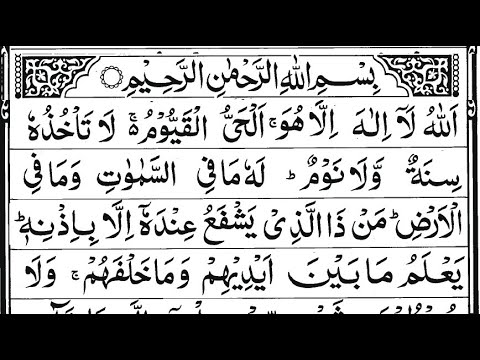 بِسْمِ اللهِ الرَّحْمٰنِ الرَّحِيْمِ
اَللهُ لَاۤ اِلٰهَ اِلَّا هُوَ ۚ اَلْحَیُّ الْقَیُّوْمُ ۚ۬ لَا تَاْخُذُهٗ
سِنَةٌ وَّلَا نَوْمٌ ؕ لَهٗ مَا فِی السَّمٰوٰتِ وَمَا فِی
الْاَرْضِ ؕ مَنْ ذَا الَّذِیْ یَشْفَعُ عِنْدَهٗۤ اِلَّا بِاِذْنِهٖ ؕ
یَعْلَمُ مَا بَیْنَ اَیْدِیْهِمْ وَمَا خَلْفَهُمْ ۚ وَلَا